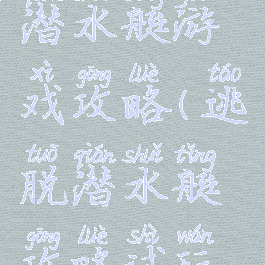 潜水艇游
xì gōng lüè táo
戏攻略(逃
tuō qián shuǐ tǐng
脱潜水艇
gōng lüè shì wán
攻略试玩